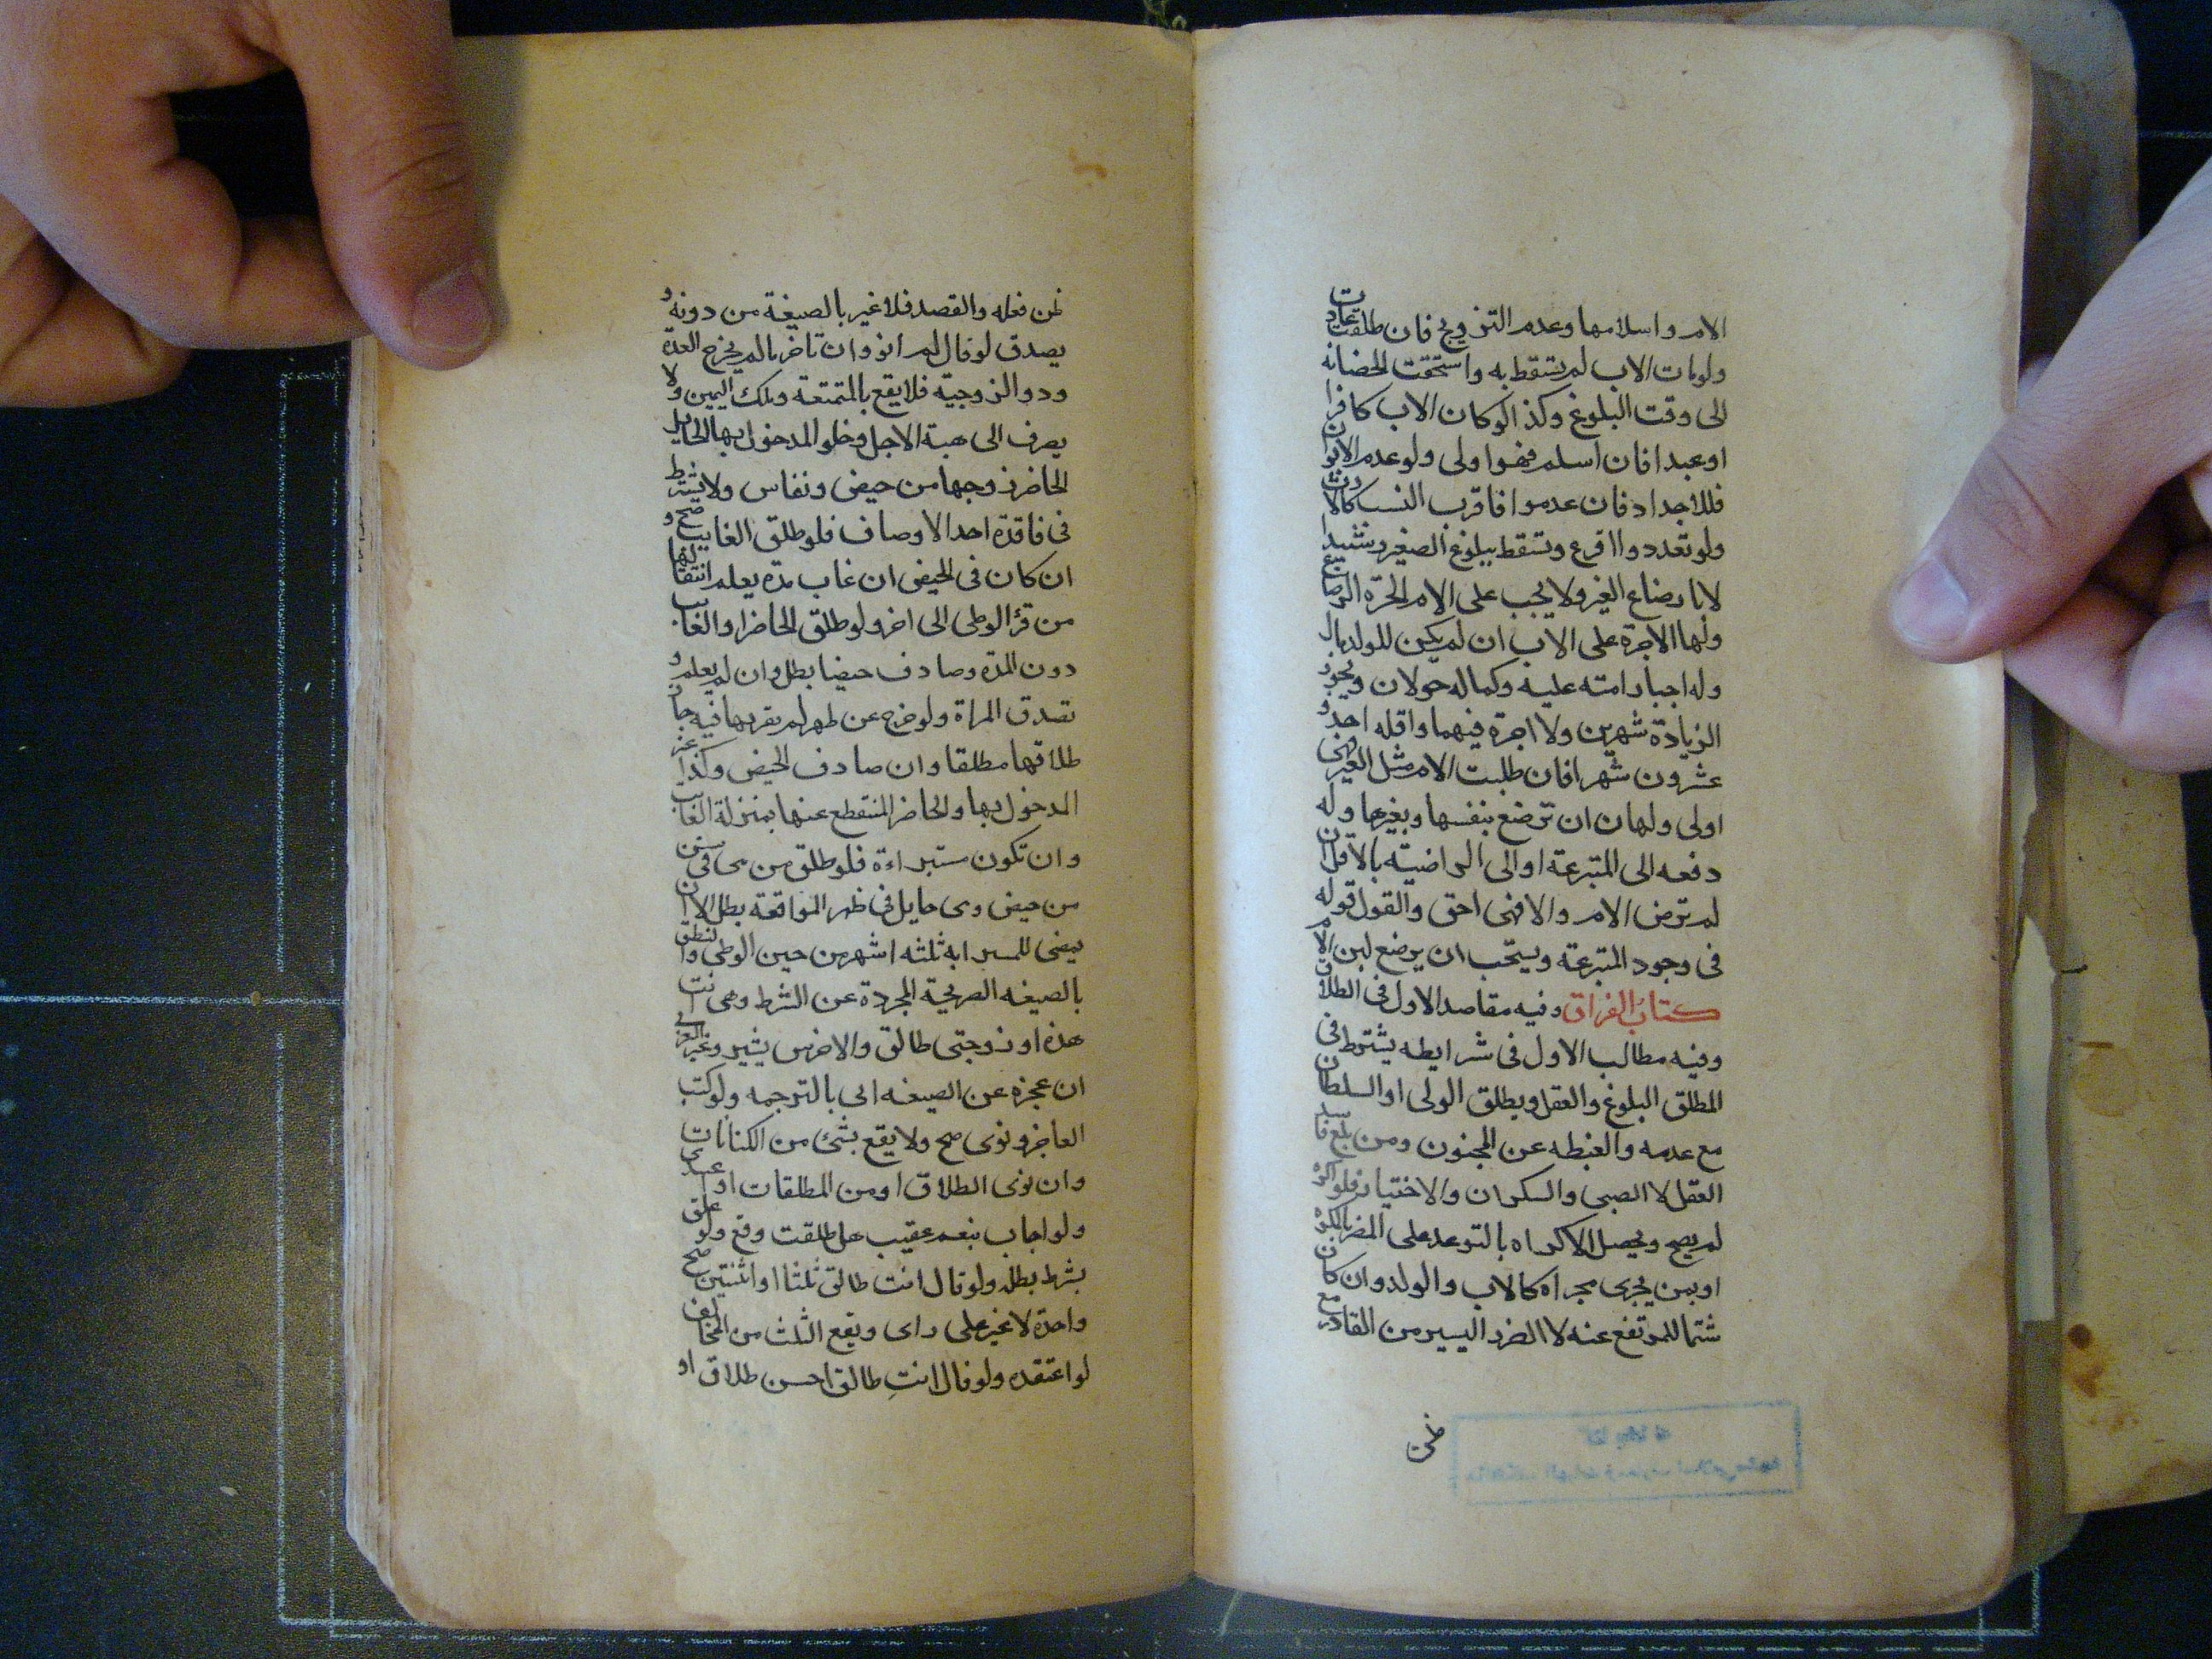 الام واسلامها وعدم التزويج فان طلقت عادت
ولومات الاب لم يسقط به واستحقت الحضانه
الى وقت البلوغ وكذا لو كان الاب كافرا
او عبدا فان اسلم فهو اولى ولو عدم الابوان
فللاجداد فان عدموا فاقرب النسب كالارث
ولو تعددوا اقرع وتسقط ببلوغ الصغير رشيدا
لا بارضاع الغير ولا يجب على الام الحرة الرضاع
ولها الاجرة على الاب ان لم يكن للولد مال
وله اجبار امته عليه وكماله حولان ويجوز
الزيادة شهرين ولا اجرة فيهما واقله احد و
عشرون شهرا فان طلبت الام مثل الغير فهى
اولى ولها ان ترضع بنفسها وبغيرها وله
دفعه الى المتبرعة او الى الراضية بالاقل ان
لم ترض الام والا فهى احق والقول قوله
فى وجود المتبرعة ويستحب ان يرضع لبن الام
كتاب الفراق وفيه مقاصد الاول فى الطلاق
وفيه مطالب الاول فى شرايطه يشترط فى
المطلق البلوغ والعقل ويطلق الولى او السلطان
مع عدمه والغبطه عن المجنون ومن بلغ فاسد
العقل لا الصبى والسكران والاختيار فلو اكره
لم يصح ويحصل الاكراه بالتوعد على المضر بالمكره
او بمن يجرى مجراه كالاب والولد وان كان
شتما للمرتفع عنه لا الضرر اليسير من القادر مع
ظن
ظن فعله والقصد فلا غير بالصيغة من دونه و
يصدق لو قال لم انو وان تاخر ما لم يخرج العدة
ودو الزوجية فلا يقع بالمتمتعة وملك اليمين ولا
يصرف الى هبة الاجل وخلو المدخول بها الحايل
الحاضر زوجها من حيض ونفاس ولا يشترط
فى فاقدة احد الاوصاف فلو طلق الغايب صح و
ان كان فى الحيض ان غاب مدة يعلم انتقالها
من قرء الوطى الى اخر ولو طلق الحاضر او الغايب
دون المدة وصادف حيضا بطل وان لم يعلم و
تصدق المراة ولو خرج عن طهر لم يقربها فيه جاز
طلاقها مطلقا وان صادف الحيض وكذا غير
المدخول بها والحاضر المنقطع عنها بمنزلة الغايب
وان تكون مستبراءة فلو طلق من هى فى سن
من حيض وهى حايل فى طهر المواقعة بطل الا ان
يمضى للمسترابه ثلثه اشهر من حين الوطى والنطق
بالصيغه الصريحة المجردة عن الشرط وهى انت
هذه او زوجتى طالق والاخرس يشير وغير العربى
ان عجزه عن الصيغه اتى بالترجمه ولو كتب
العاجز ونوى صح ولا يقع بشئ من الكنايات
وان نوى الطلاق او من المطلقات او اعتدى
ولو اجاب بنعم عقيب هل طلقت وقع ولو علق
بشرط بطل ولو قال انت طالق ثلثا او اثنتين صح
واحدة لا غير على راى ويقع الثلث من المخالف
لو اعتقده ولو قال انتِ طالق احسن طلاق او